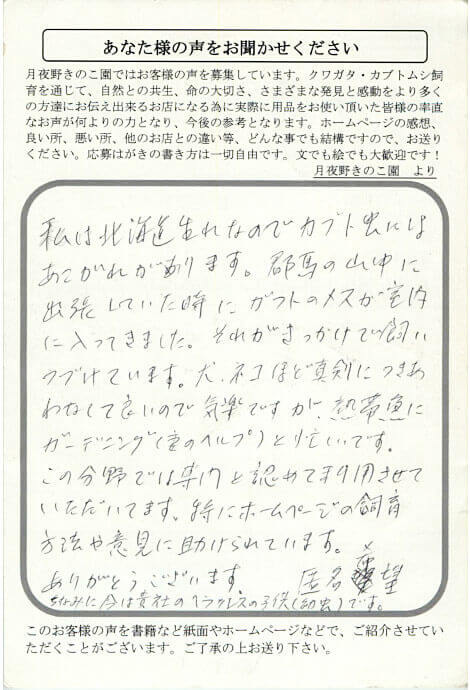 あなた様の声をお聞かせください
月夜野きのこ園ではお客様の声を募集しています。クワガタ・カブトムシ飼
育を通じて、自然との共生、命の大切さ、さまざまな発見と感動をより多く
の方達にお伝え出来るお店になる為に実際に用品をお使い頂いた皆様の率直
なお声が何よりの力となり、今後の参考となります。ホームページの感想、
良い所、悪い所、他のお店との違い等、どんな事でも結構ですので、お送り
ください。応募はがきの書き方は一切自由です。文でも絵でも大歓迎です！
月夜野きのこ園　より
私は北海道生れなのでカブト虫には
あこがれがあります。群馬の山中に
出張していた時にカブトのメスが室内
に入ってきました。それがきっかけで飼い
つづけています。犬、ネコほど真剣につきあ
わなくして良いので気楽ですが、熱帯魚に
ガーデニング(妻のヘルプ)と忙しいです。
この分野では専門と認めて利用させて
いただいてます。特にホームページの飼育
方法や意見に助けられています。
ありがとうございます。　匿名希望
ちなみに今は貴社のヘラクレスの子供(幼虫)です。
このお客様の声を書籍など紙面やホームページなどで、ご紹介させていた
だくことがございます。ご了承の上お送り下さい。